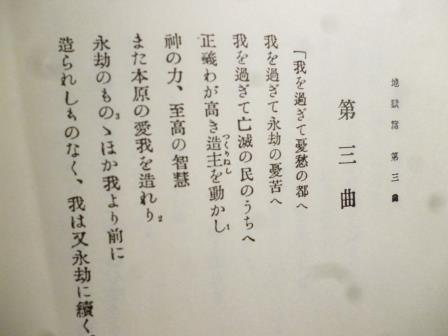 地獄篇 第三曲
第三曲
「我を過ぎて憂愁の都へ
我を過ぎて永劫の憂苦へ
我を過ぎて亡滅の民のうちへ
正義わが高き造主を動かし1
つくりぬし
神の力、至高の智慧
また本原の愛我を造れり2
永劫のもの3ゝほか我より前に
造られしものなく、我は又永劫に續く、